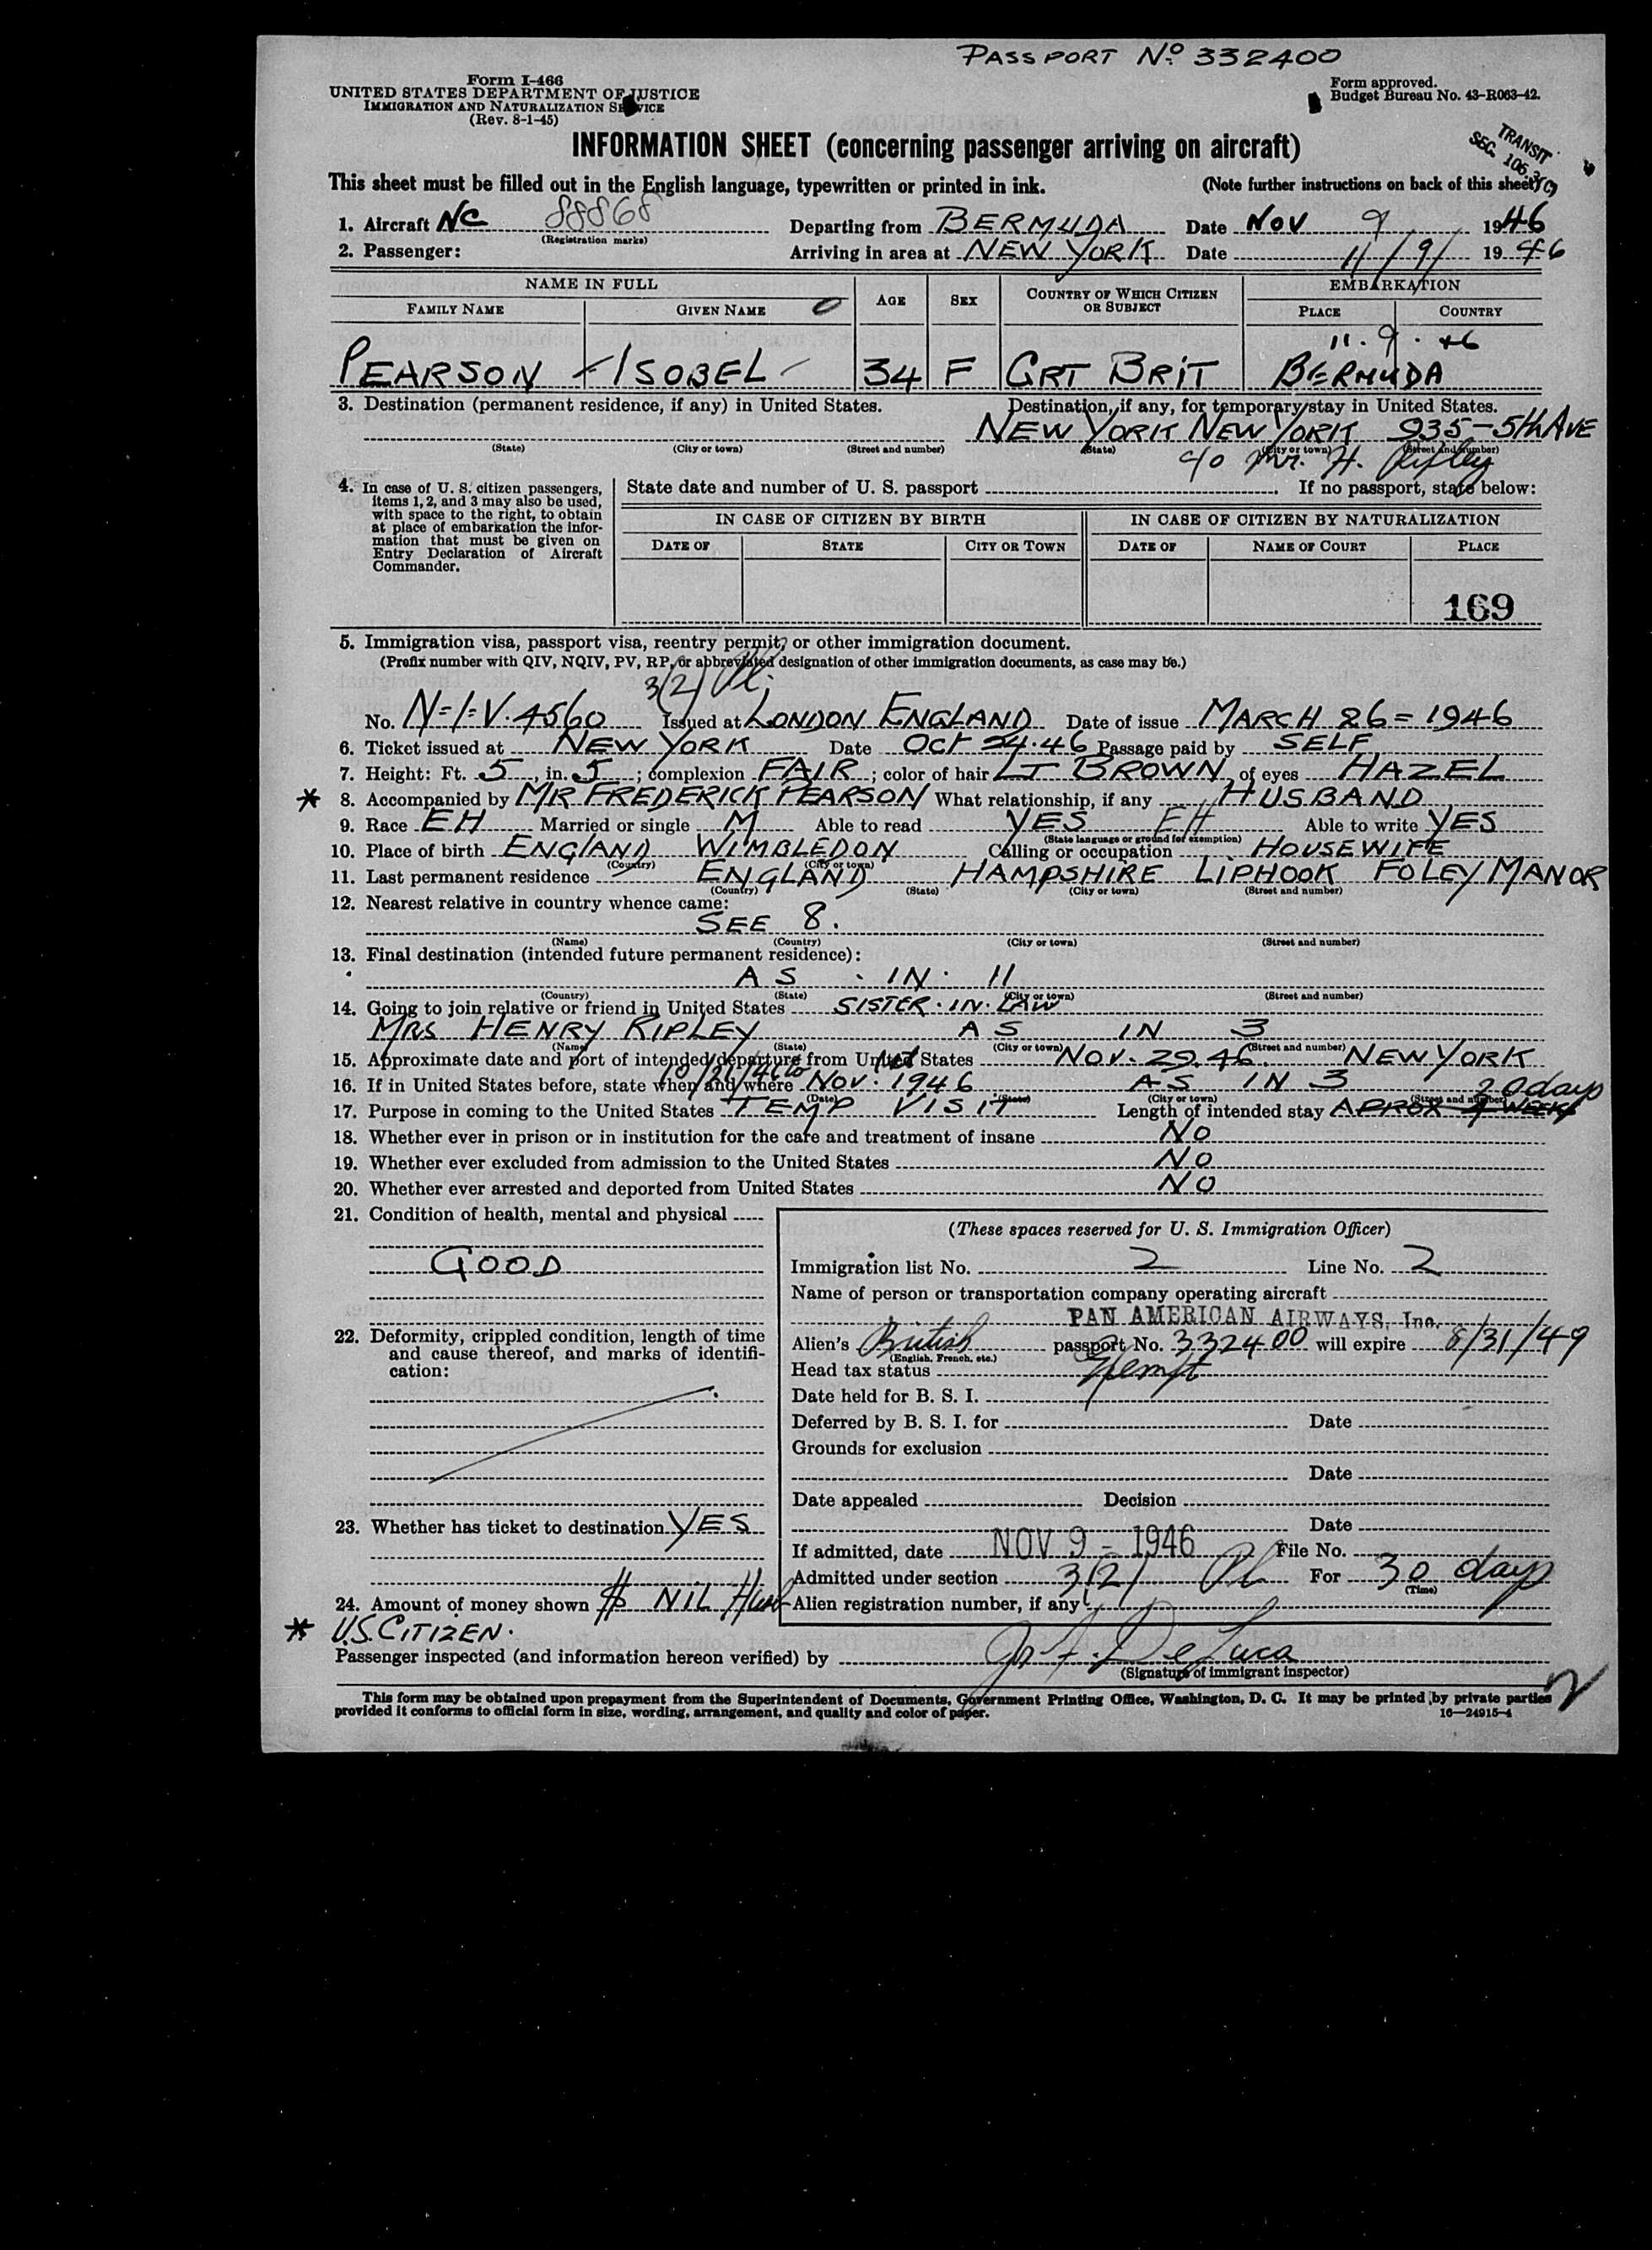 PASSPORT No. 332400
Form I-466
UNITED STATES DEPARTMENT OF JUSTICE
IMMIGRATION AND NATURALIZATION SERVICE
(Rev. 8-1-45)
Form approved.
Budget Bureau No. 43-R063-42.
INFORMATION SHEET (concerning passenger arriving on aircraft)
TRANSIT
SEC. 106.3(C)
This sheet must be filled out in the English language, typewritten or printed in ink. (Note further instructions on back of this sheet)
1. Aircraft NC 88868 Departing from BERMUDA Date NOV 9 1946
(Registration marks)
2. Passenger: Arriving in area at NEW YORK Date 11/9/ 1946
NAME IN FULL AGE SEX COUNTRY OF WHICH CITIZEN OR SUBJECT EMBARKATION
FAMILY NAME GIVEN NAME PLACE COUNTRY
11.9.46
PEARSON - ISOBEL - 34 F GRT BRIT BERMUDA
3. Destination (permanent residence, if any) in United States. Destination, if any, for temporary stay in United States.
NEW YORK NEW YORK 935-5th AVE
(State) (City or town) (Street and number) (State) (City or town) (Street and number)
c/o Mr. H. Ripley
4. In case of U. S. citizen passengers, items 1, 2, and 3 may also be used, with space to the right, to obtain at place of embarkation the information that must be given on Entry Declaration of Aircraft Commander.
State date and number of U. S. passport If no passport, state below:
IN CASE OF CITIZEN BY BIRTH IN CASE OF CITIZEN BY NATURALIZATION
DATE OF STATE CITY OR TOWN DATE OF NAME OF COURT PLACE
169
5. Immigration visa, passport visa, reentry permit, or other immigration document.
(Prefix number with QIV, NQIV, PV, RP, or abbreviated designation of other immigration documents, as case may be.)
3(2) Pl.
No. N-I-V.4560 Issued at LONDON ENGLAND Date of issue MARCH 26=1946
6. Ticket issued at NEW YORK Date OCT 24.46 Passage paid by SELF
7. Height: Ft. 5, in. 5; complexion FAIR; color of hair LT BROWN, of eyes HAZEL
* 8. Accompanied by MR FREDERICK PEARSON What relationship, if any HUSBAND
9. Race EH Married or single M Able to read YES EH Able to write YES
(State language or ground for exemption)
10. Place of birth ENGLAND WIMBLEDON Calling or occupation HOUSEWIFE
(Country) (City or town)
11. Last permanent residence ENGLAND HAMPSHIRE LIPHOOK FOLEY MANOR
(Country) (State) (City or town) (Street and number)
12. Nearest relative in country whence came:
SEE 8.
(Name) (Country) (City or town) (Street and number)
13. Final destination (intended future permanent residence):
AS IN 11
(Country) (State) (City or town) (Street and number)
14. Going to join relative or friend in United States SISTER-IN-LAW
MRS HENRY RIPLEY AS IN 3
(Name) (State) (City or town) (Street and number)
15. Approximate date and port of intended departure from United States NOV. 29.46. NEW YORK
16. If in United States before, state when and where 10/21/46 to NOV. 1946 AS IN 3
(Date) (State) (City or town) (Street and number)
20 days
17. Purpose in coming to the United States TEMP VISIT Length of intended stay APROX WEEKS
18. Whether ever in prison or in institution for the care and treatment of insane NO
19. Whether ever excluded from admission to the United States NO
20. Whether ever arrested and deported from United States NO
21. Condition of health, mental and physical
GOOD
22. Deformity, crippled condition, length of time and cause thereof, and marks of identification:
23. Whether has ticket to destination YES
24. Amount of money shown $ NIL Husb
* U.S. CITIZEN.
(These spaces reserved for U. S. Immigration Officer)
Immigration list No. 2 Line No. 2
Name of person or transportation company operating aircraft
PAN AMERICAN AIRWAYS, Inc.
Alien's British passport No. 332400 will expire 8/31/49
(English, French, etc.)
Head tax status Exempt
Date held for B. S. I.
Deferred by B. S. I. for Date
Grounds for exclusion
Date
Date appealed Decision
Date
If admitted, date NOV 9 - 1946 File No.
Admitted under section 3(2) Pl For 30 days
(Time)
Alien registration number, if any
Passenger inspected (and information hereon verified) by De Luca
(Signature of immigrant inspector)
2
This form may be obtained upon prepayment from the Superintendent of Documents, Government Printing Office, Washington, D. C. It may be printed by private parties
provided it conforms to official form in size, wording, arrangement, and quality and color of paper. 16—24915-4